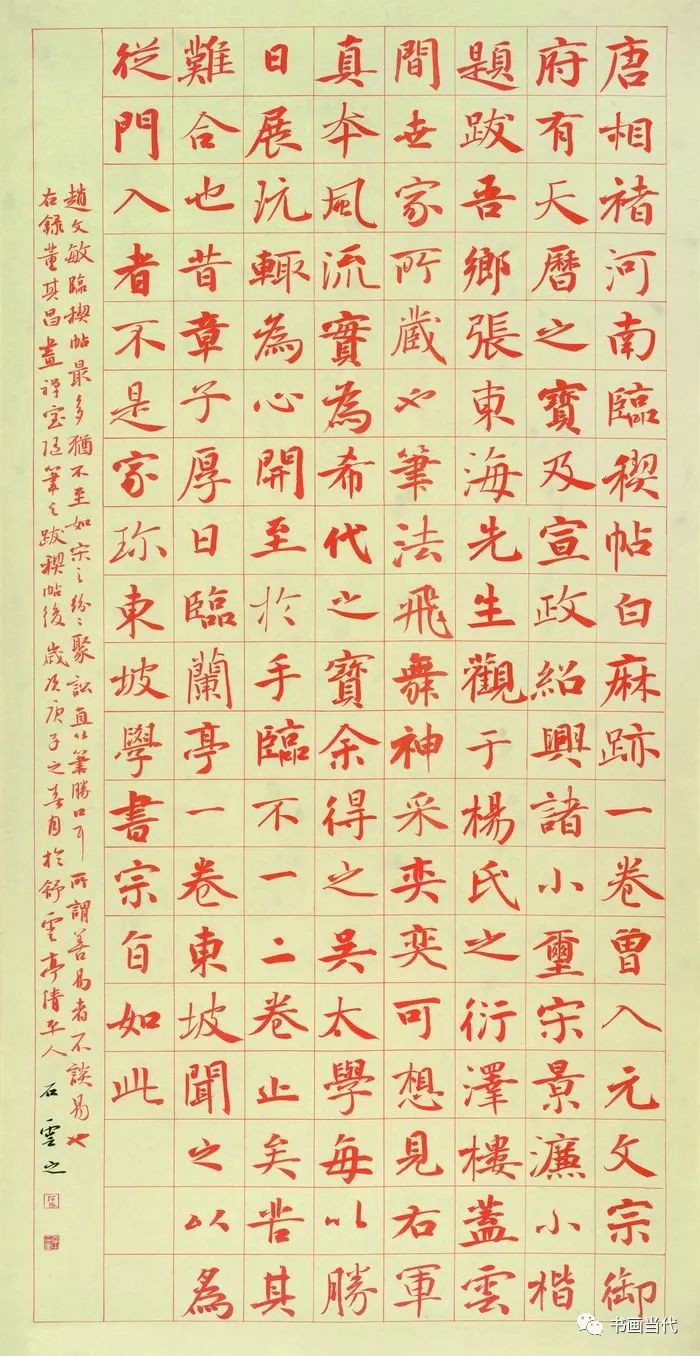 唐相褚河南臨禊帖白麻跡一卷曾入元文宗御
府有天曆之寶及宣政紹興諸小璽宋景濂小楷
題跋吾鄉張東海先生觀于楊氏之衍澤樓蓋雲
間世家所藏也筆法飛舞神采奕奕可想見右軍
真本風流實為希代之寶余得之吳太學每以勝
日展玩輒為心開至於手臨不一二卷止矣苦其
難合也昔章子厚日臨蘭亭一卷東坡聞之以為
從門入者不是家珍東坡學書宗旨如此
趙文敏臨禊帖最多猶不至如宋之紛〻聚訟直以筆勝口耳所謂善易者不談易也
右錄董其昌畫禪室隨筆之跋禊帖後歲次庚子之春月於舒雲亭清平人石雲之
书画当代